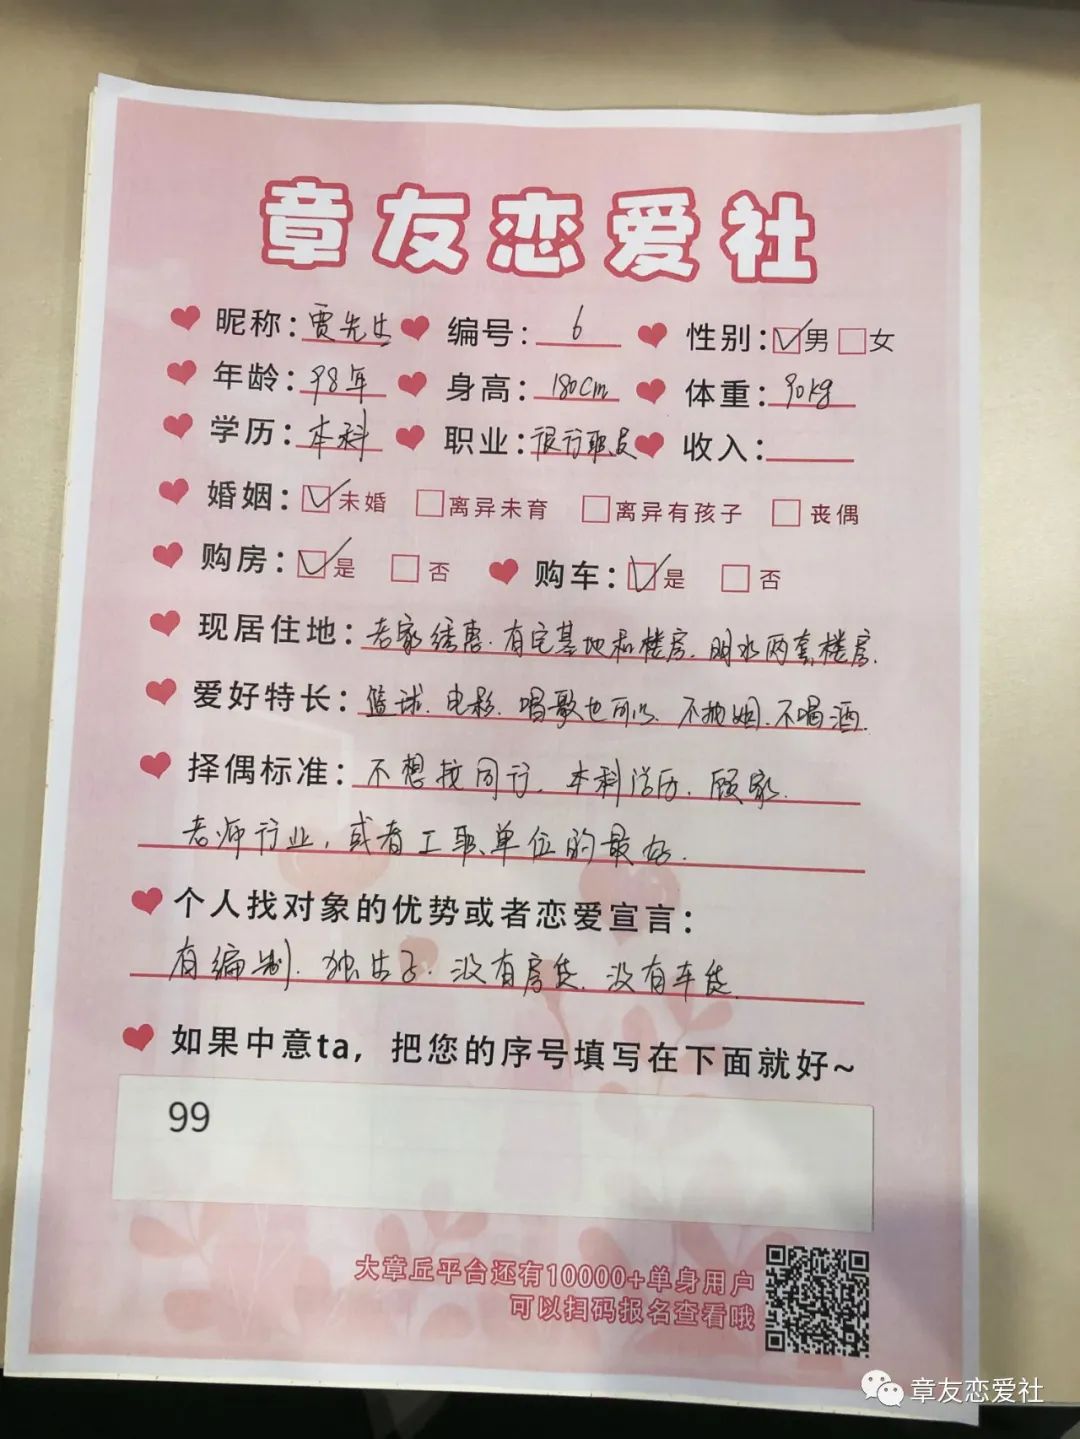 章友恋爱社
昵称：贾先生 编号：6 性别：☑男 □女
年龄：98年 身高：180cm 体重：90kg
学历：本科 职业：银行职员 收入：
婚姻：☑未婚 □离异未育 □离异有孩子 □丧偶
购房：☑是 □否 购车：☑是 □否
现居住地：老家绣惠.有宅基地和楼房.明水两套楼房.
爱好特长：篮球.电影.唱歌也可以.不抽烟.不喝酒.
择偶标准：不想找同行.本科学历.顾家.
老师行业,或者工职单位的最好.
个人找对象的优势或者恋爱宣言：
有编制.独生子.没有房贷.没有车贷.
如果中意ta，把您的序号填写在下面就好~
99
大章丘平台还有10000+单身用户
可以扫码报名查看哦
章友恋爱社